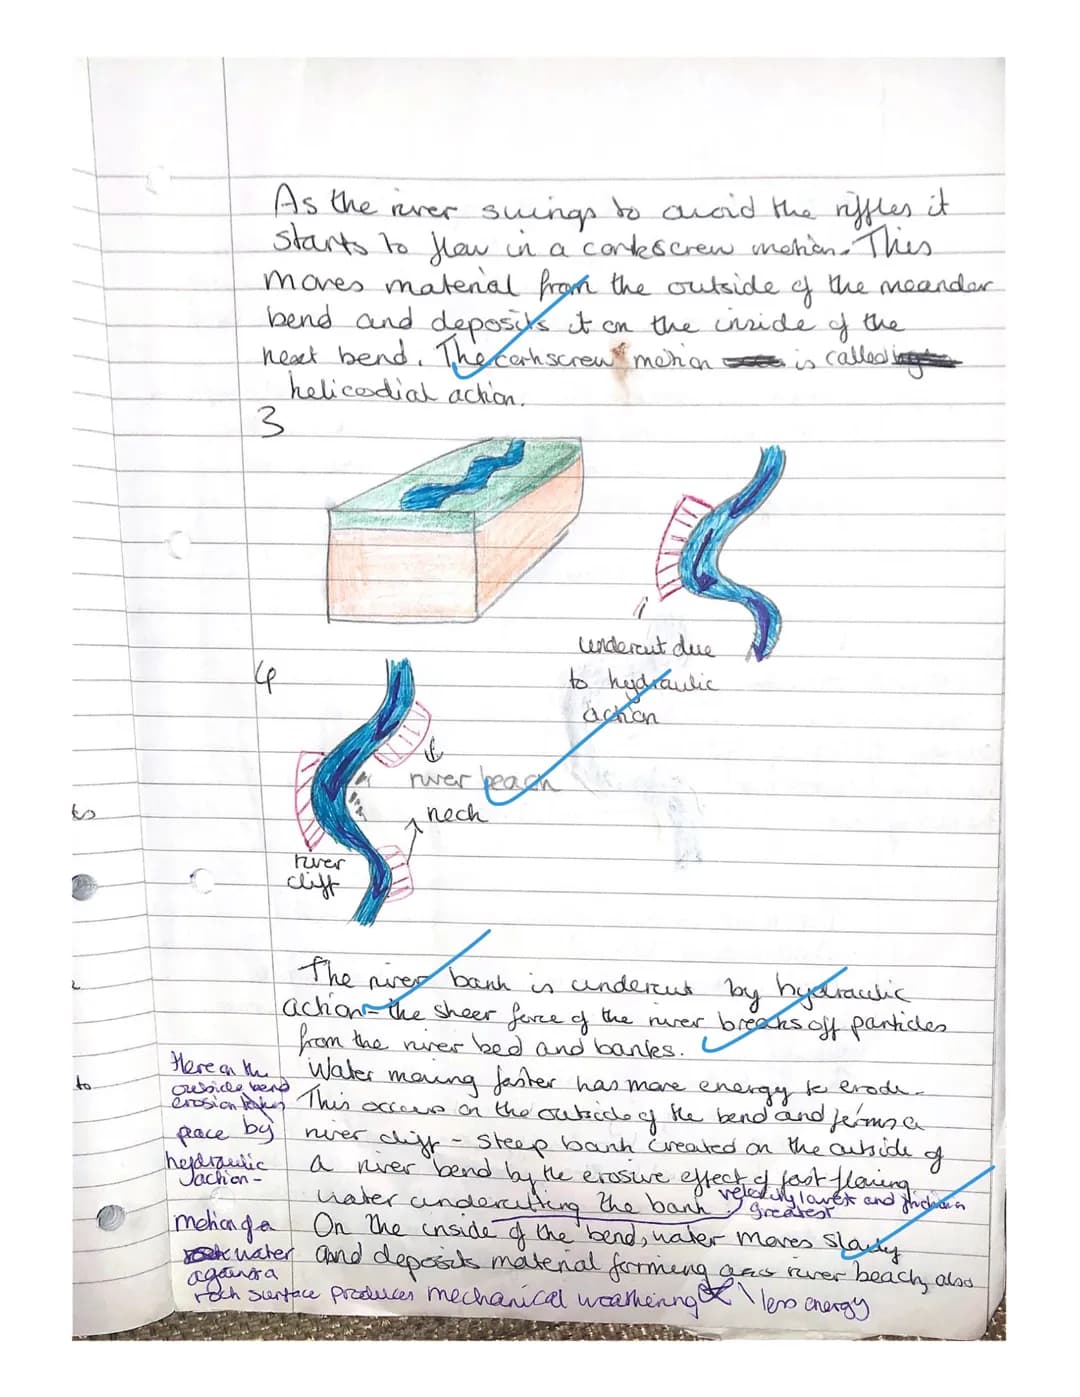 As the river swings to avoid the riffles it
starts to flow in a corkscrew motion. This
moves material from the outside of the meander
bend and deposits it on the inside of the
next bend. The corkscrew motion is called
helicodial action.
3
undercut due
to hydraulic
action
4
river beach
neck
river
cliff
ts
to
The river bank is undercut by hydraulic
action - the sheer force of the river breaks off particles
from the river bed and banks.
Water moving faster has more energy to erode.
This occurs on the outside of the bend and forms a
river cliff - steep bank created on the outside of
a river bend by the erosive effect of fast flowing
water undercutting the bank.
velocity lower and friction
greatest
On the inside of the bend, water moves slowly
and deposits material forming a river beach, also
less energy
Here on the
outside bend
erosion takes
place by
hydraulic
action -
motion of a
water
against a
rock surface produces mechanical weathering